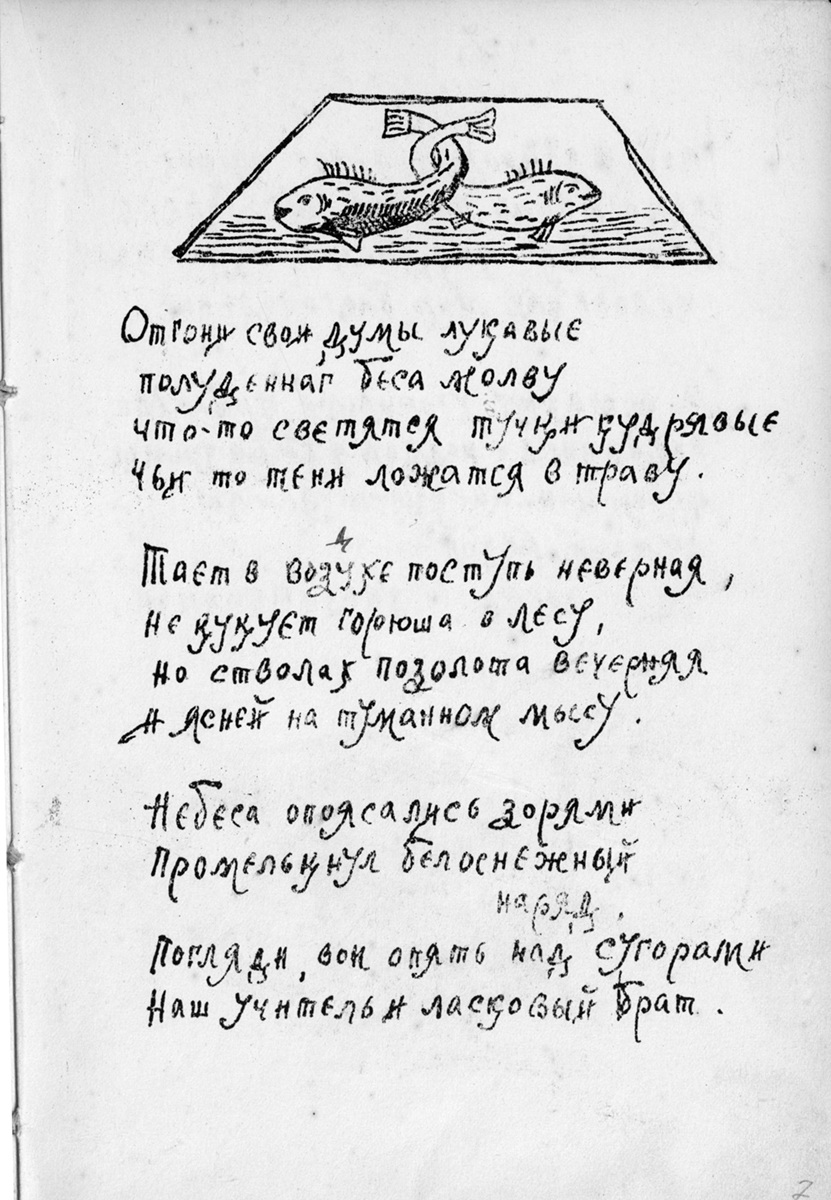 Отгони свои думы лукавые
полуденнаг беса молву
что-то светятся тучки кудрявые
Чьи то тени ложатся в траву.
Тает в воздухе поступь неверная,
не кукует горюша в лесу,
но стволах позолота вечерняя
и ясней на туманном мысу.
Небеса опоясались зорями
Промелькнул белоснежный
наряд.
Погляди, вон опять над сугорами
Наш учитель и ласковый брат.
7